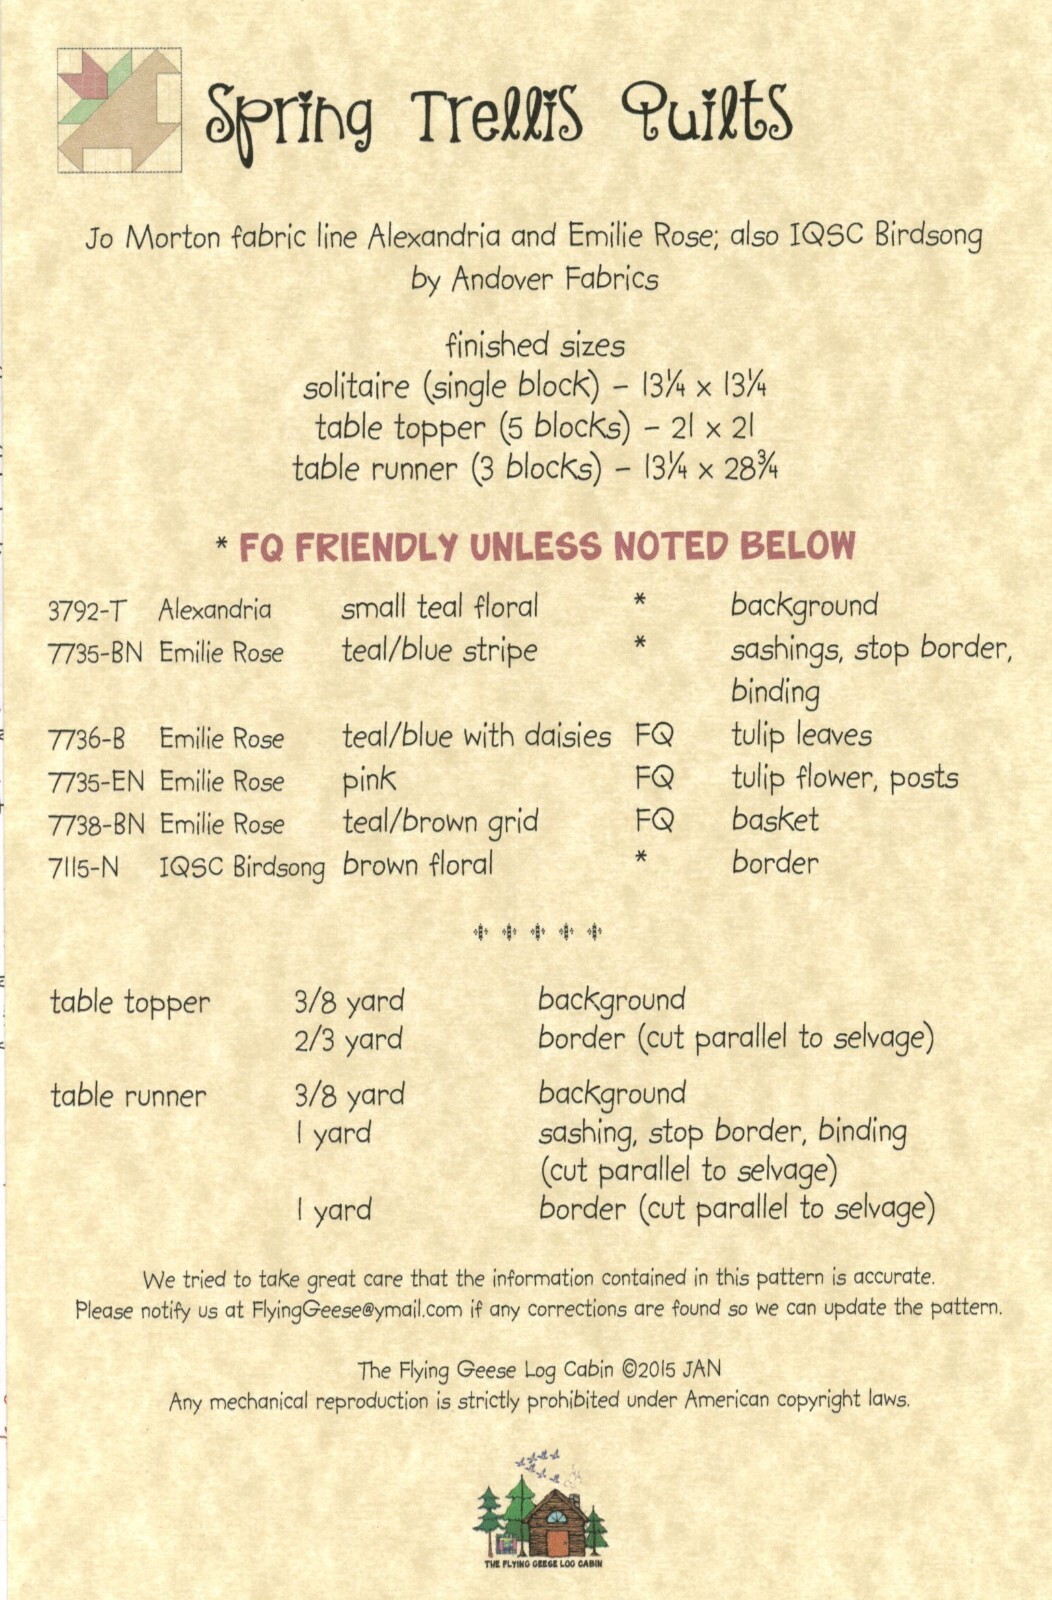 Spring Trellis Quilts
Jo Morton fabric line Alexandria and Emilie Rose; also IQSC Birdsong
by Andover Fabrics
finished sizes
solitaire (single block) – 13¼ x 13¼
table topper (5 blocks) – 21 x 21
table runner (3 blocks) – 13¼ x 28¾
* FQ FRIENDLY UNLESS NOTED BELOW
3792-T Alexandria small teal floral * background
7735-BN Emilie Rose teal/blue stripe * sashings, stop border,
binding
7736-B Emilie Rose teal/blue with daisies FQ tulip leaves
7735-EN Emilie Rose pink FQ tulip flower, posts
7738-BN Emilie Rose teal/brown grid FQ basket
7115-N IQSC Birdsong brown floral * border
table topper 3/8 yard background
2/3 yard border (cut parallel to selvage)
table runner 3/8 yard background
1 yard sashing, stop border, binding
(cut parallel to selvage)
1 yard border (cut parallel to selvage)
We tried to take great care that the information contained in this pattern is accurate.
Please notify us at FlyingGeese@ymail.com if any corrections are found so we can update the pattern.
The Flying Geese Log Cabin ©2015 JAN
Any mechanical reproduction is strictly prohibited under American copyright laws.
THE FLYING GEESE LOG CABIN